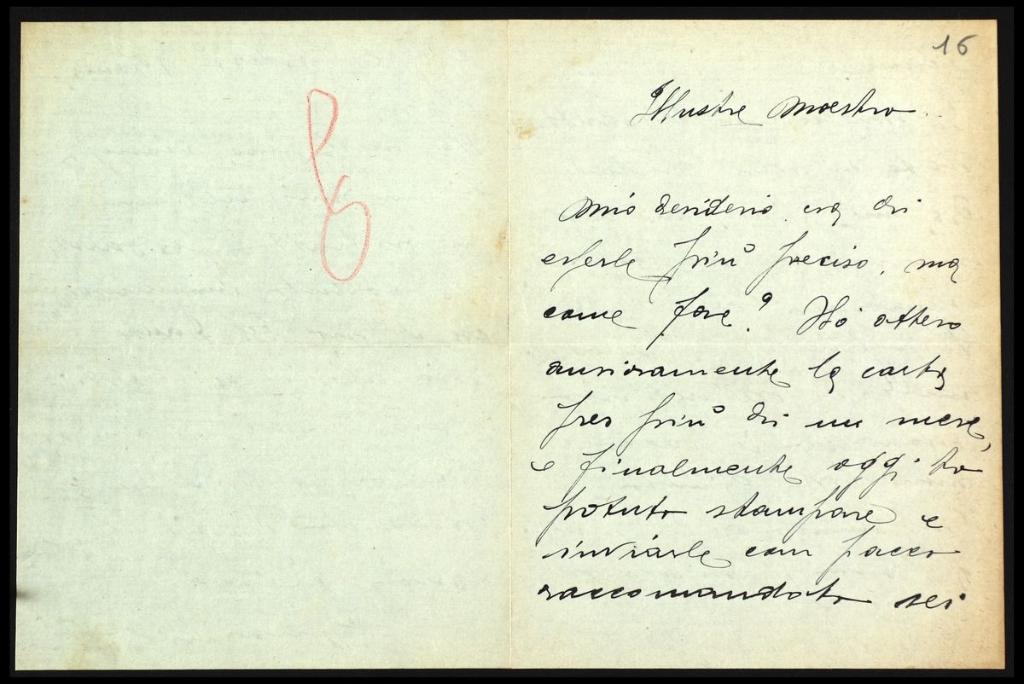 16
Illustre Maestro.
Mio desiderio era di
esserle più preciso, ma
come fare? Hó atteso
ansiosamente la carta
per più di un mese,
e finalmente oggi ho
potuto stampare e
inviarle com pacco
raccomandato sei